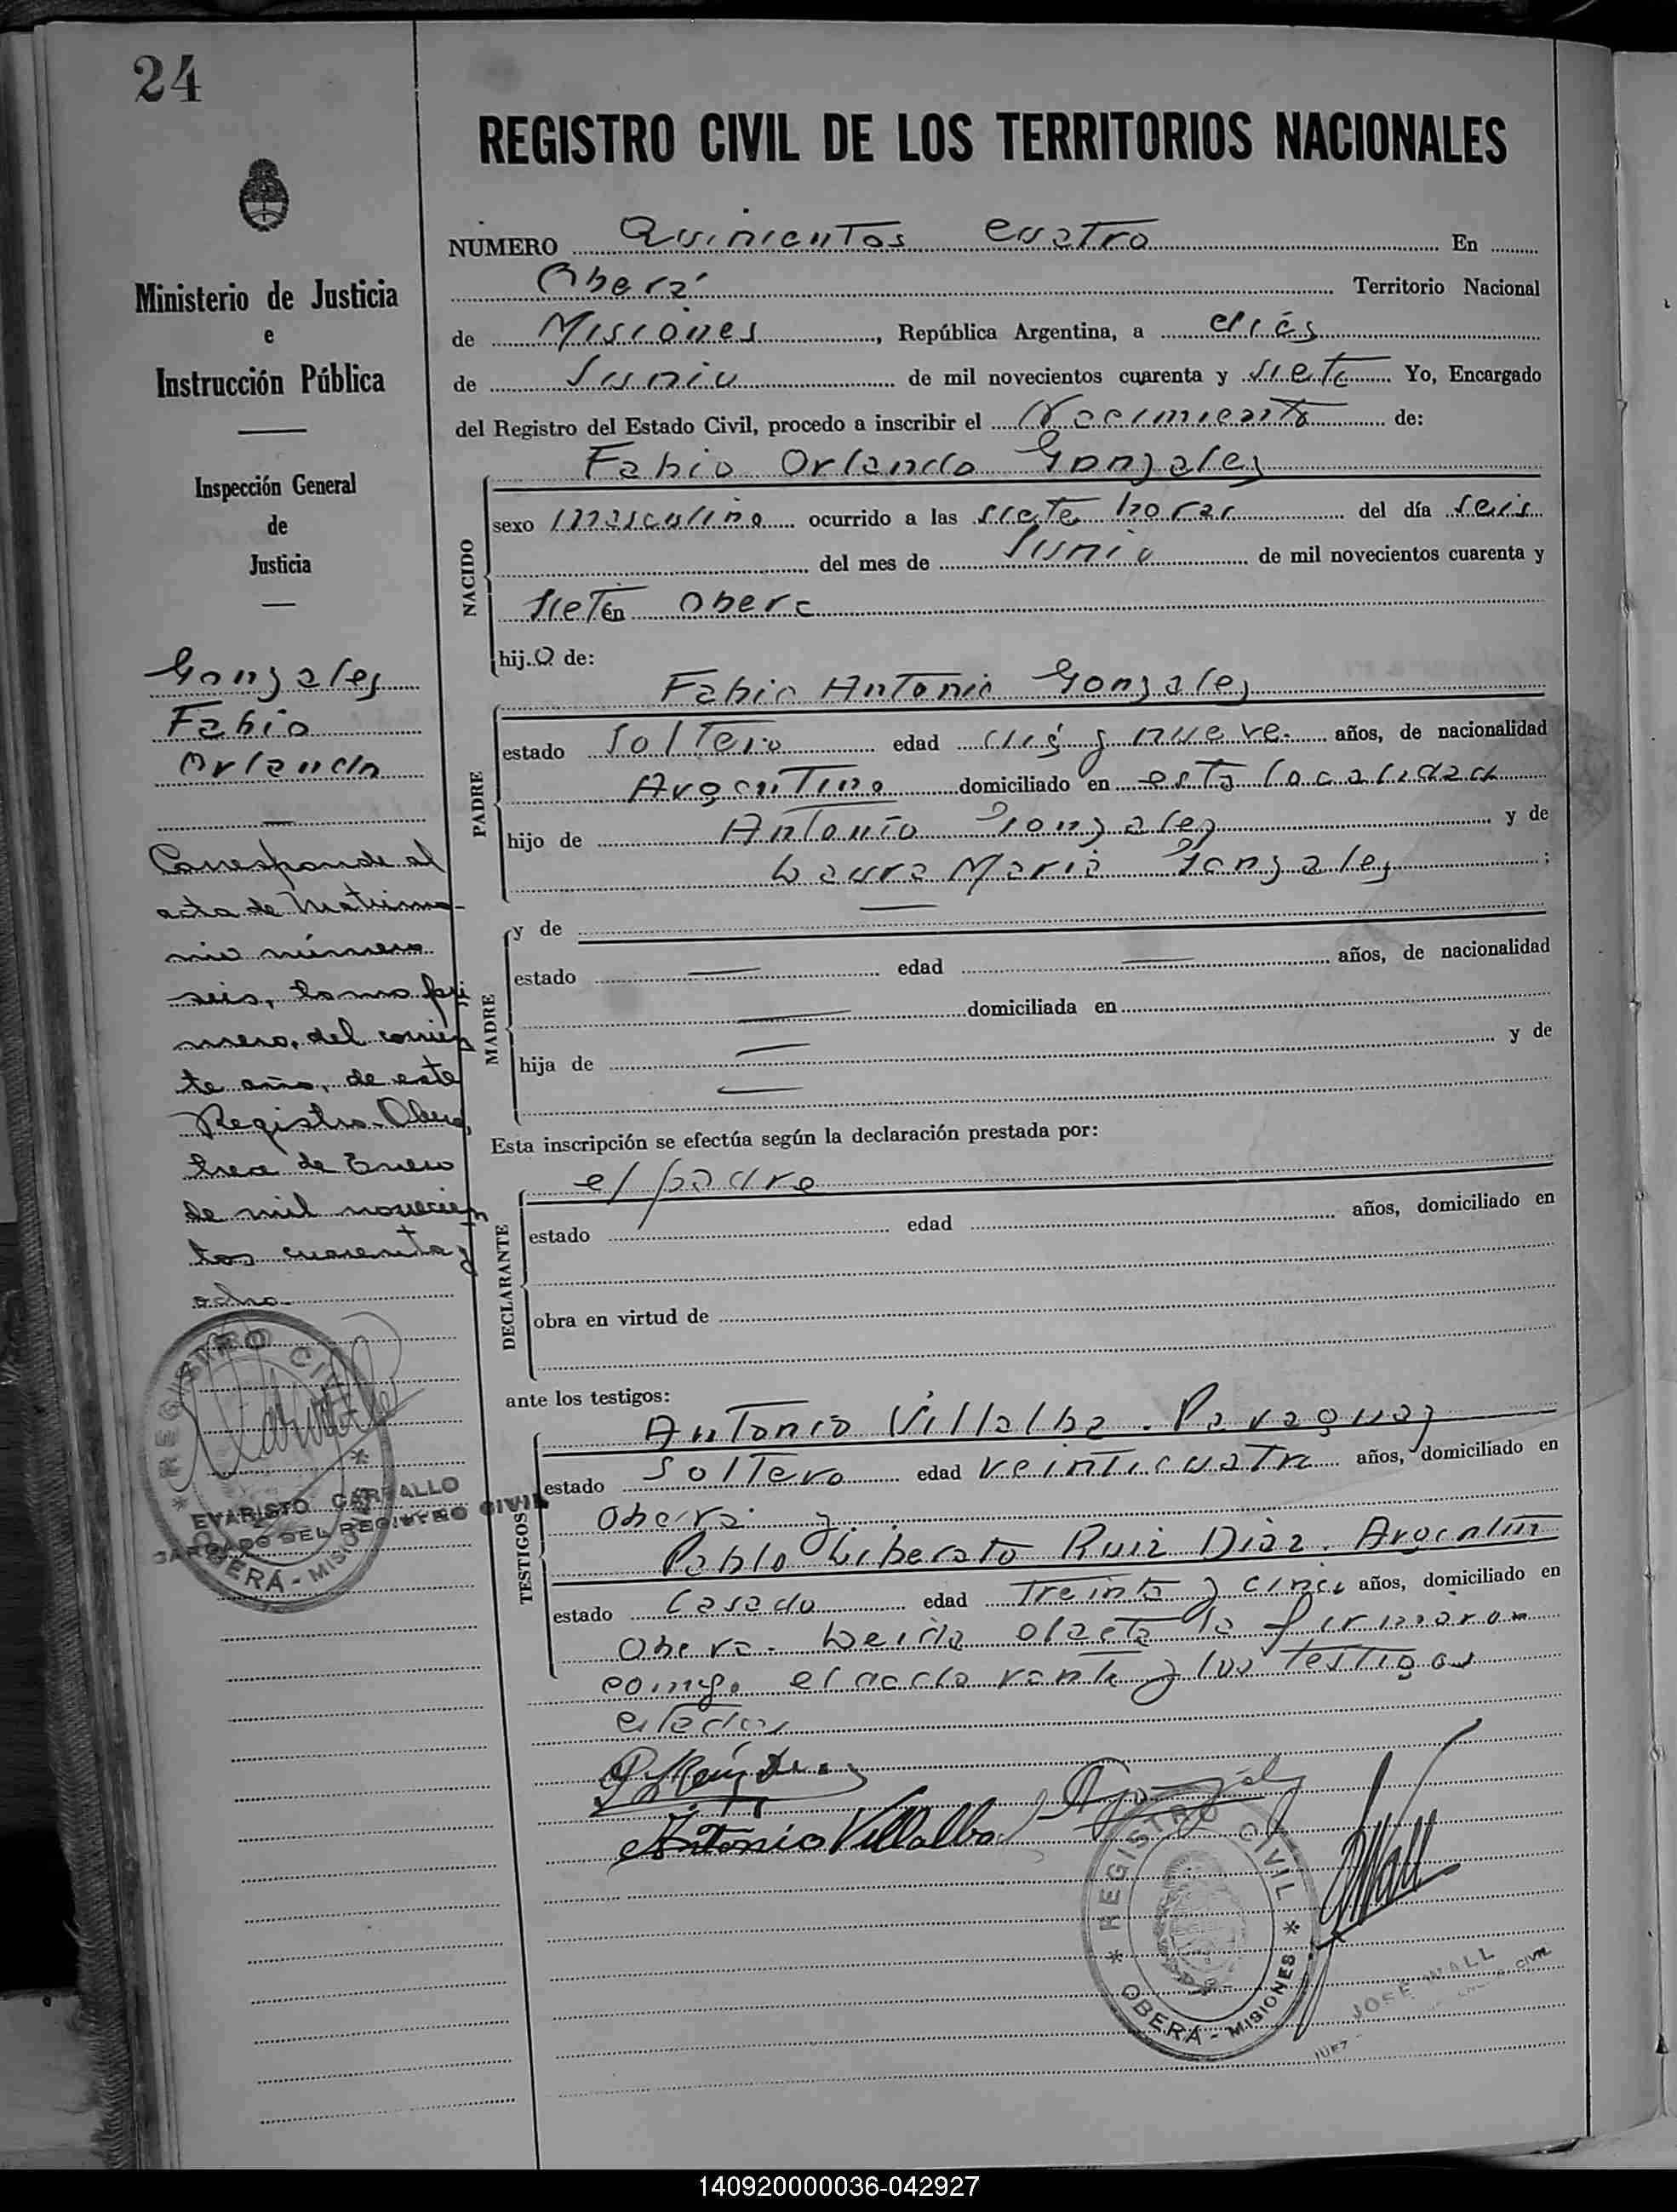 24
REGISTRO CIVIL DE LOS TERRITORIOS NACIONALES
Ministerio de Justicia
e
Instrucción Pública
Inspección General
de
Justicia
Gonzales
Fabio
Orlando
Corresponde al
acta de Matrimo-
nio número
seis, tomo pri
mero, del corrien
te año, de este
Registro. Obera,
trece de Enero
de mil novecien
tos cuarenta y
ocho.
REGISTRO CIVIL
EVARISTO CARVALLO
ENCARGADO DEL REGISTRO CIVIL
OBERÁ - MISIONES
NUMERO Quinientos cuatro En
Oberá Territorio Nacional
de Misiones, República Argentina, a diés
de Junio de mil novecientos cuarenta y siete Yo, Encargado
del Registro del Estado Civil, procedo a inscribir el Nacimiento de:
NACIDO
Fabio Orlando Gonzales
sexo masculino ocurrido a las siete horas del día seis
del mes de Junio de mil novecientos cuarenta y
siete en Obera
hijo de:
PADRE
Fabio Antonio Gonzales
estado Soltero edad diés y nueve años, de nacionalidad
Argentino domiciliado en esta localidad
hijo de Antonio Gonzales y de
Laura Maria Gonzales;
MADRE
y de
estado edad años, de nacionalidad
domiciliada en
hija de y de
Esta inscripción se efectúa según la declaración prestada por:
DECLARANTE
el padre
estado edad años, domiciliado en
obra en virtud de
ante los testigos:
TESTIGOS
Antonio Villalba. Paraguay
estado Soltero edad veinticuatro años, domiciliado en
Obera y
Pablo Liberato Ruiz Diaz. Argentin
estado Casado edad Treinta y cinco años, domiciliado en
Obera. Leida el acta la firmaron
comigo el declarante y los testigos
citados
Antonio Villalba
REGISTRO CIVIL
OBERÁ - MISIONES
JOSE WALL
JUEZ CIVIL
140920000036-042927